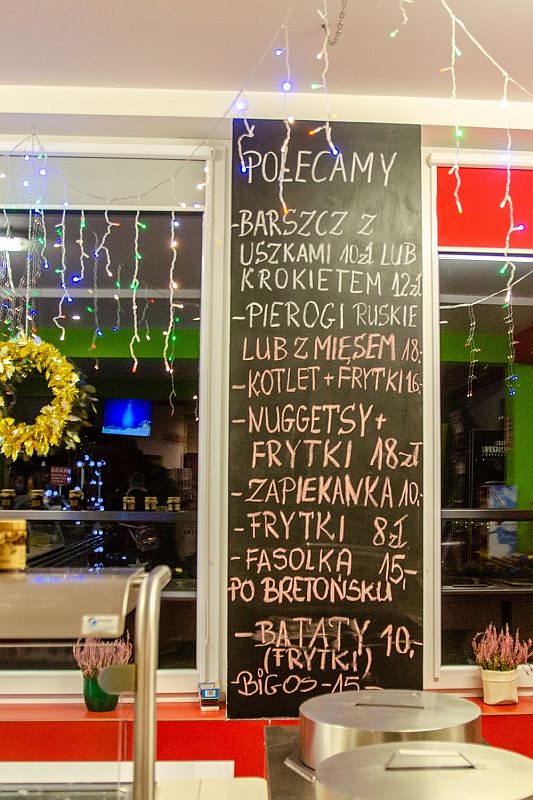 POLECAMY
-BARSZCZ Z
USZKAMI 10zł LUB
KROKIETEM 12zł
-PIEROGI RUSKIE
LUB Z MIĘSEM 18,-
-KOTLET+FRYTKI 16,-
-NUGGETSY+
FRYTKI 18zł
-ZAPIEKANKA 10,-
-FRYTKI 8zł
-FASOLKA 15,-
PO BRETOŃSKU
-BATATY 10,-
(FRYTKI)
-BiGOS-15,-